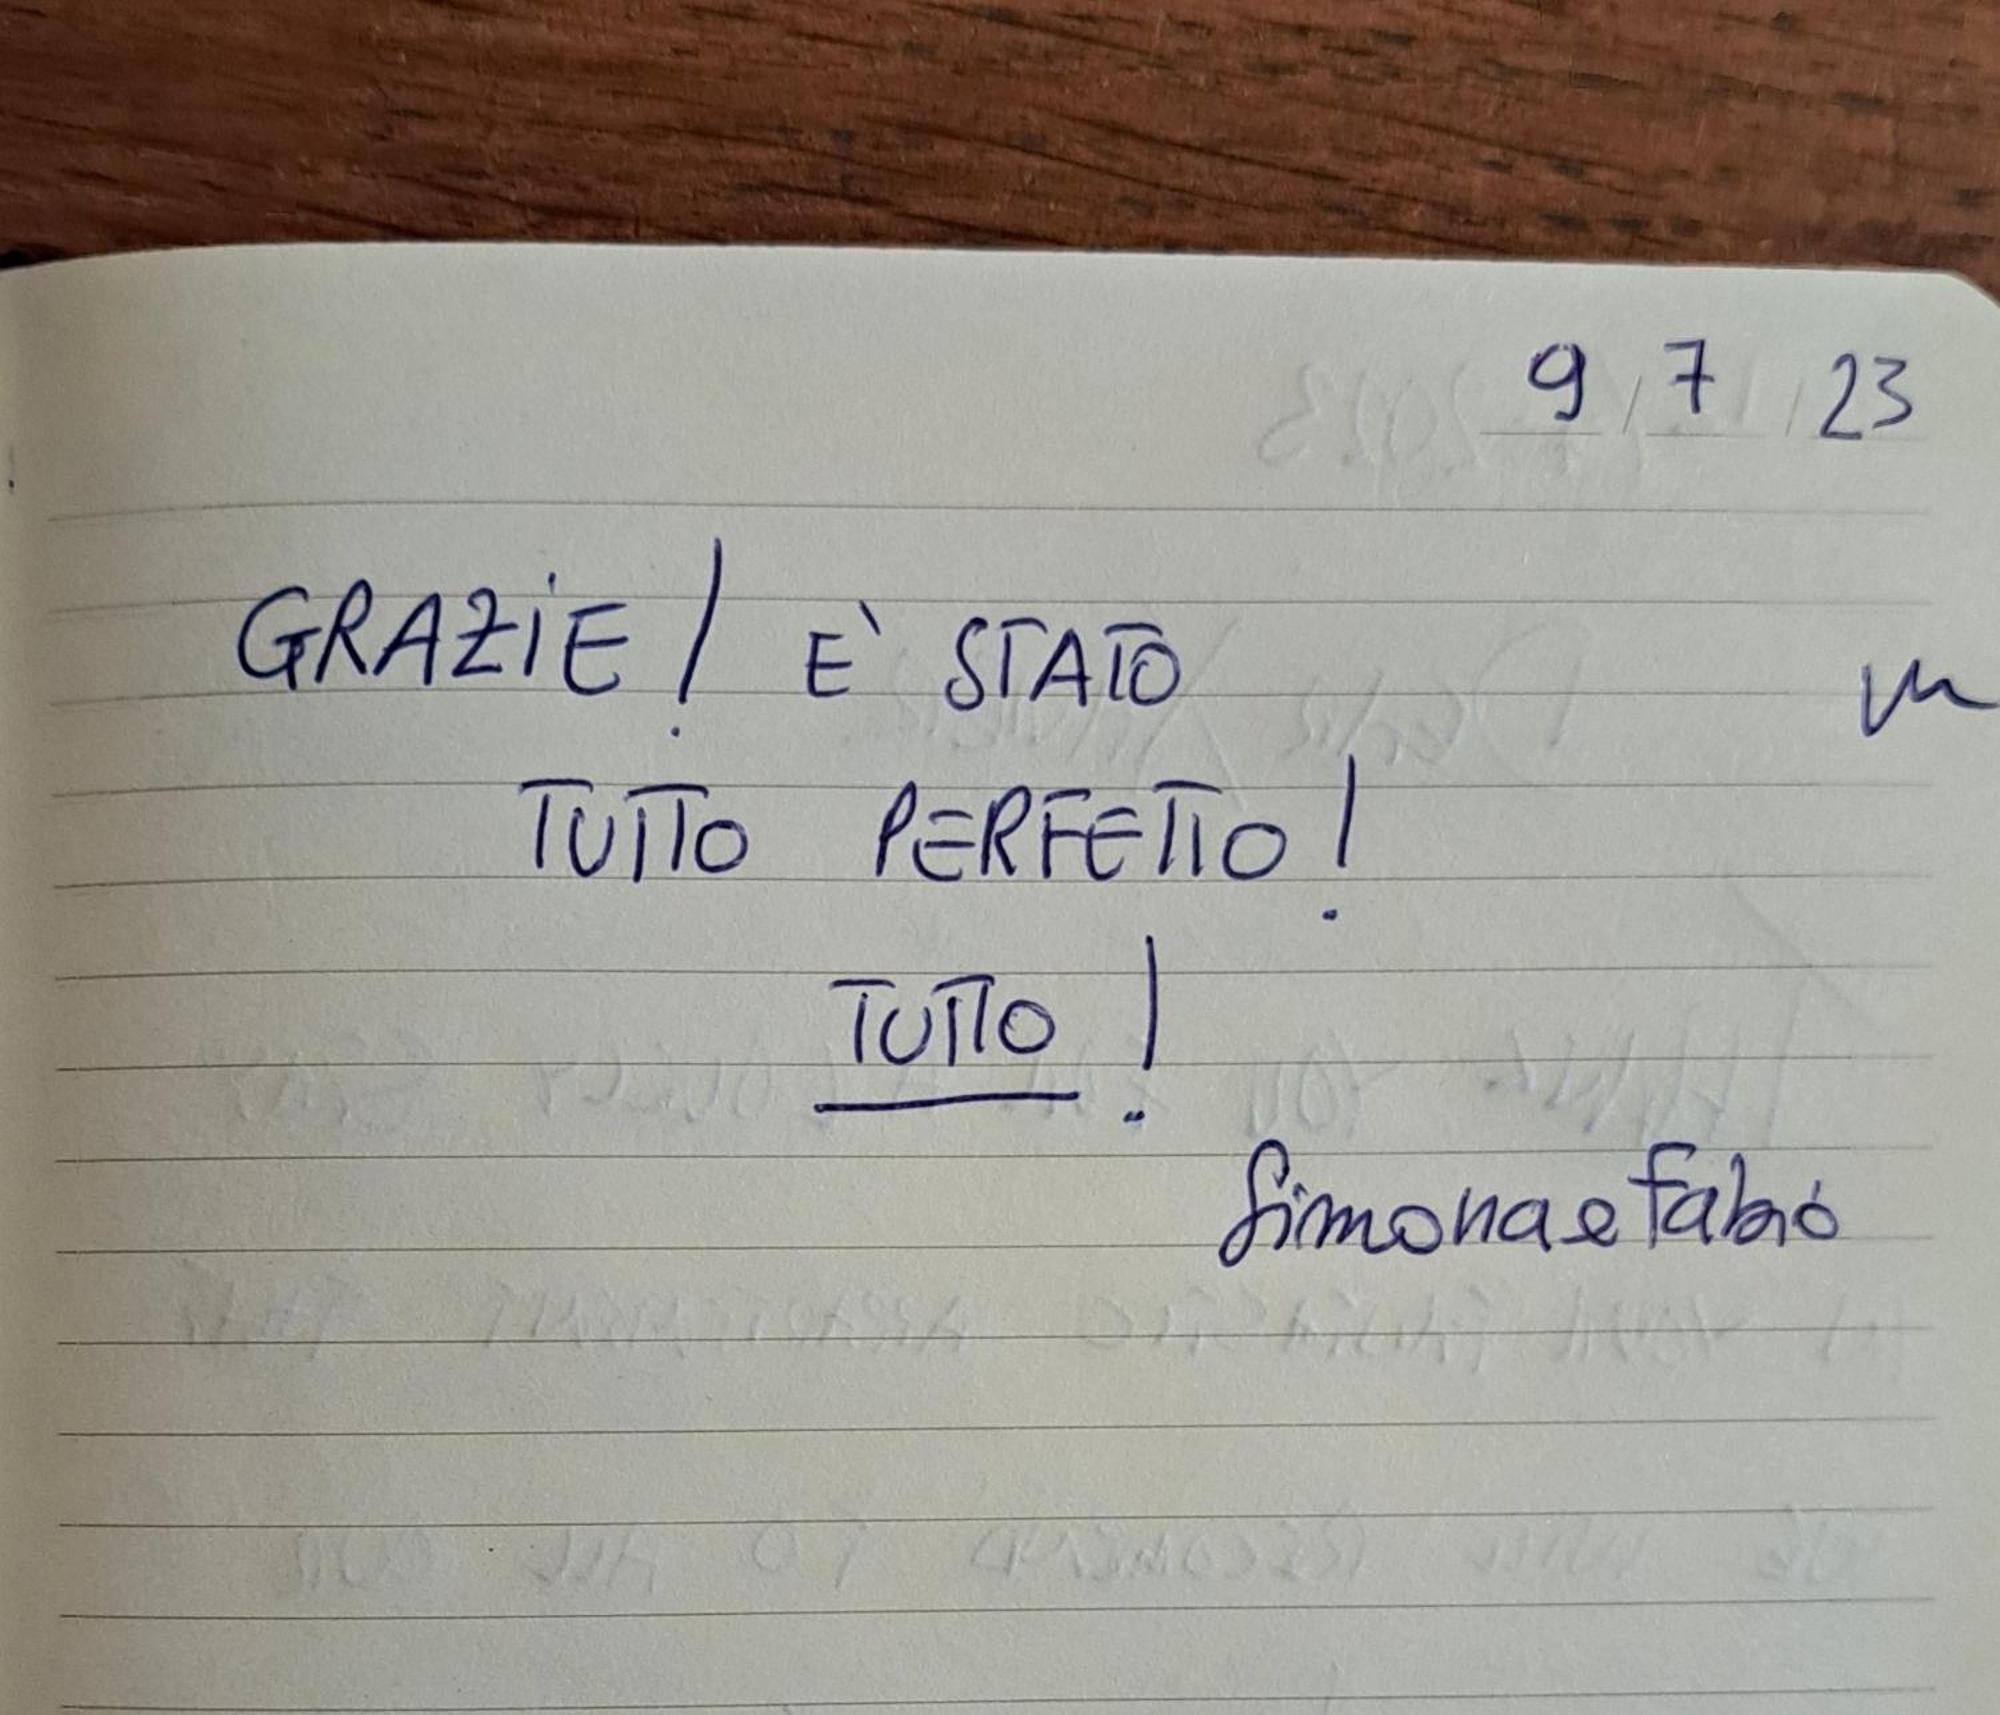 9/7/23
GRAZIE! E' STATO
TUTTO PERFETTO!
TUTTO!
Simona e Fabio